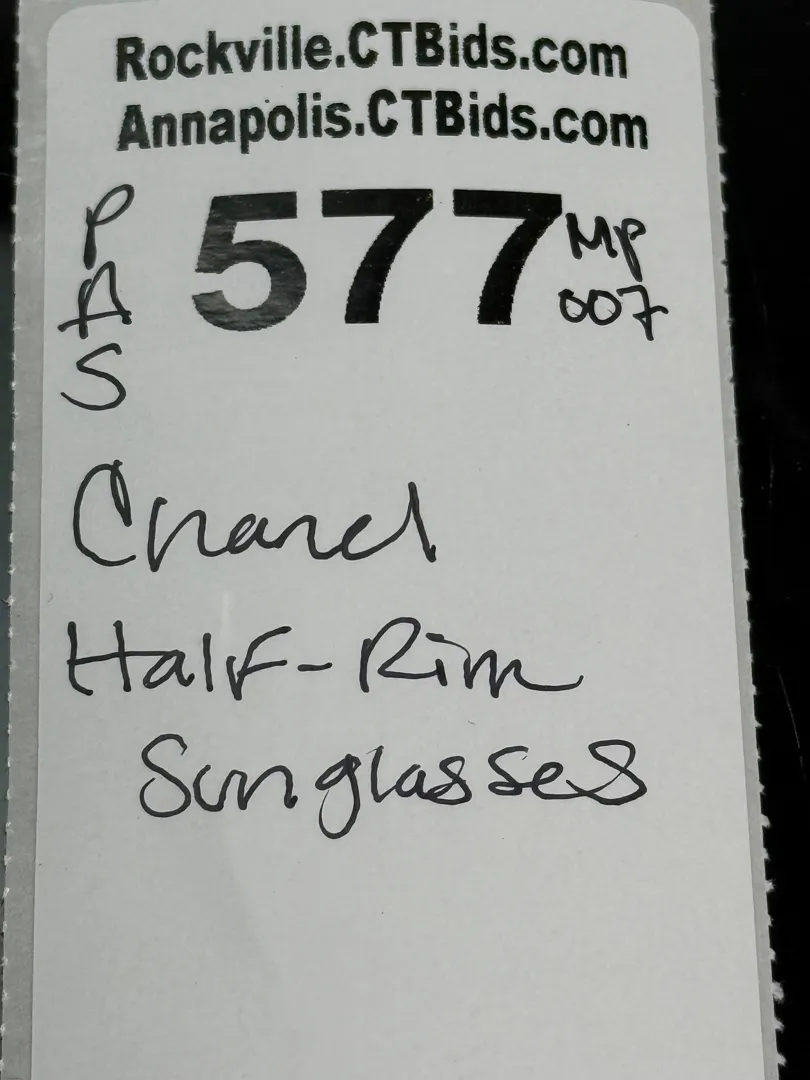 Rockville.CTBids.com
Annapolis.CTBids.com
PAS
577
MP
007
Chanel
Half-Rim
Sunglasses